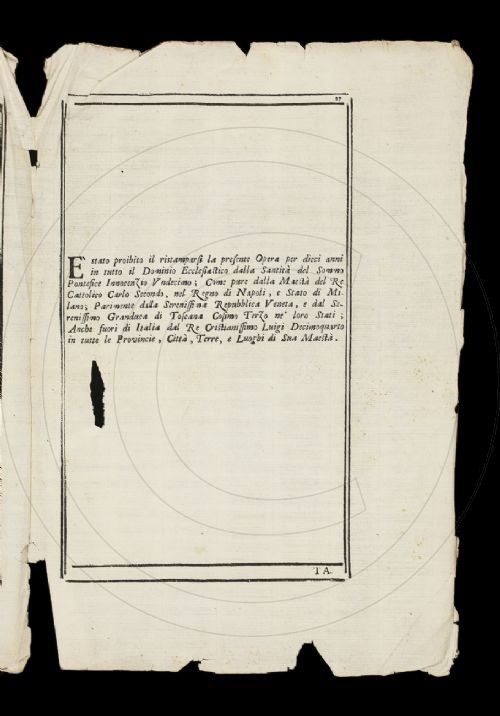 27
È stato proibito il ristamparsi la presente Opera per dieci anni
in tutto il Dominio Ecclesiastico dalla Santità del Sommo
Pontefice Innocenzio Vndecimo; Come pure dalla Maestà del Re
Cattolico Carlo Secondo, nel Regno di Napoli, e Stato di Mi-
lano; Parimente dalla Serenissima Repubblica Veneta, e dal Se-
renissimo Granduca di Toscana Cosimo Terzo ne' loro Stati;
Anche fuori di Italia dal Re Cristianissimo Luigi Decimoquarto
in tutte le Provincie, Città, Terre, e Luoghi di Sua Maestà.
TA-